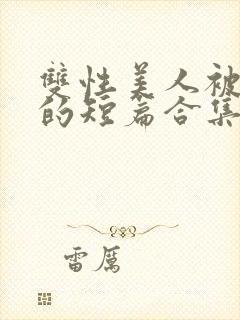 雙性美人被
的短篇合集
雷厲